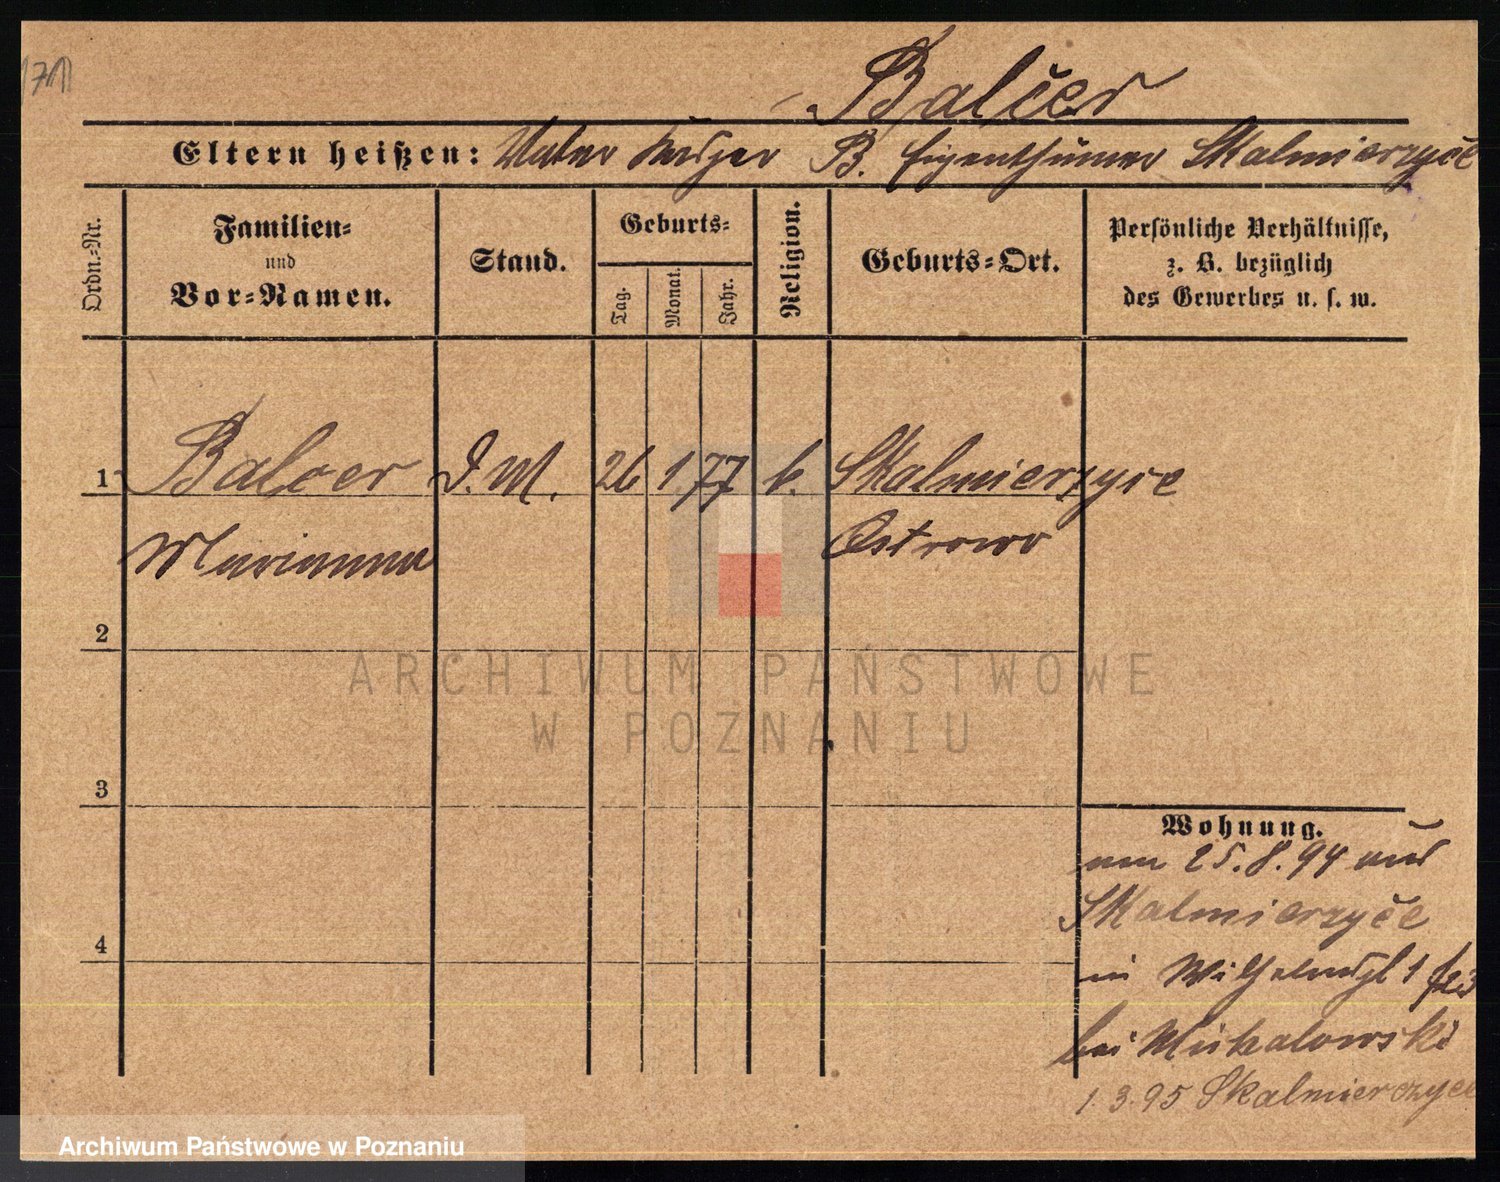 Balcer
Eltern heißen: Vater B. Eigenthümer Skalmierzyce
Ordn.-Nr.
Familien-
und
Vor-Namen.
Stand.
Geburts-
Tag.
Monat.
Jahr.
Religion.
Geburts-Ort.
Persönliche Verhältnisse,
z. B. bezüglich
des Gewerbes u. s. w.
1 Balcer D. M. 26 1 77 k. Skalmierzyce
Marianna Ostrowo
2
3
4
Wohnung.
von 25.8.94 aus
Skalmierzyce
in 1
bei Michalowski
1.3.95 Skalmierczyce
ARCHIWUM PAŃSTWOWE
W POZNANIU
Archiwum Państwowe w Poznaniu